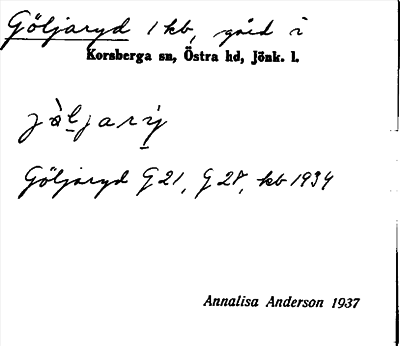 Göljaryd 1 kb, gård i
Korsberga sn, Östra hd, Jönk. l.
jàljarý
Göljaryd G 21, G 28, kb 1934
Annalisa Anderson 1937